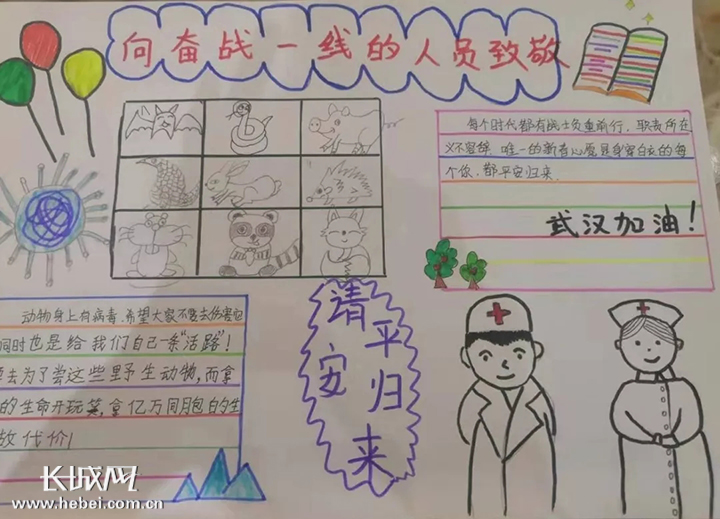 向奋战一线的人员致敬
每个时代都有战士负重前行,职责所在
义不容辞 唯一的新春心愿是身穿白衣的每
个你,都平安归来.
武汉加油!
请平安归来
动物身上有病毒,希望大家不要去伤害它
同时也是给我们自己一条“活路”!
去为了尝这些野生动物,而拿
的生命开玩笑,拿亿万同胞的生
做代价!
长城网
www.hebei.com.cn